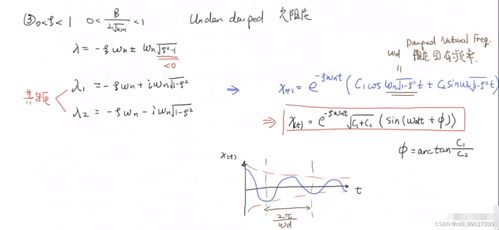 ③ 0<ξ<1 0< B/2√km <1 Underdamped 欠阻尼
λ = -ξωn ± ωn√ξ²-1
<0
共轭
λ₁ = -ξωn + iωn√1-ξ²
λ₂ = -ξωn - iωn√1-ξ²
Damped Natural Freq.
ωd 阻尼固有频率.
⇒ x(t) = e^-ξωnt (C₁cos ωn√1-ξ² t + C₂sin ωn√1-ξ² t)
⇒ x(t) = e^-ξωnt √C₁+C₂ (sin(ωdt + ϕ))
ϕ = arctan C₁/C₂
x(t)
t
2π/ωd